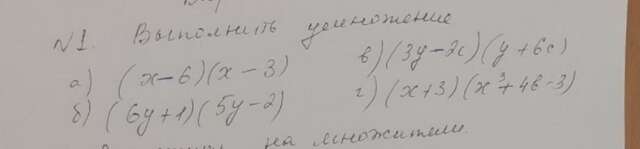 N1. Выполнить умножение
а) (x-6)(x-3)
б) (6y+1)(5y-2)
в) (3y-2c)(y+6c)
г) (x+3)(x³+4в-3)
на множители.